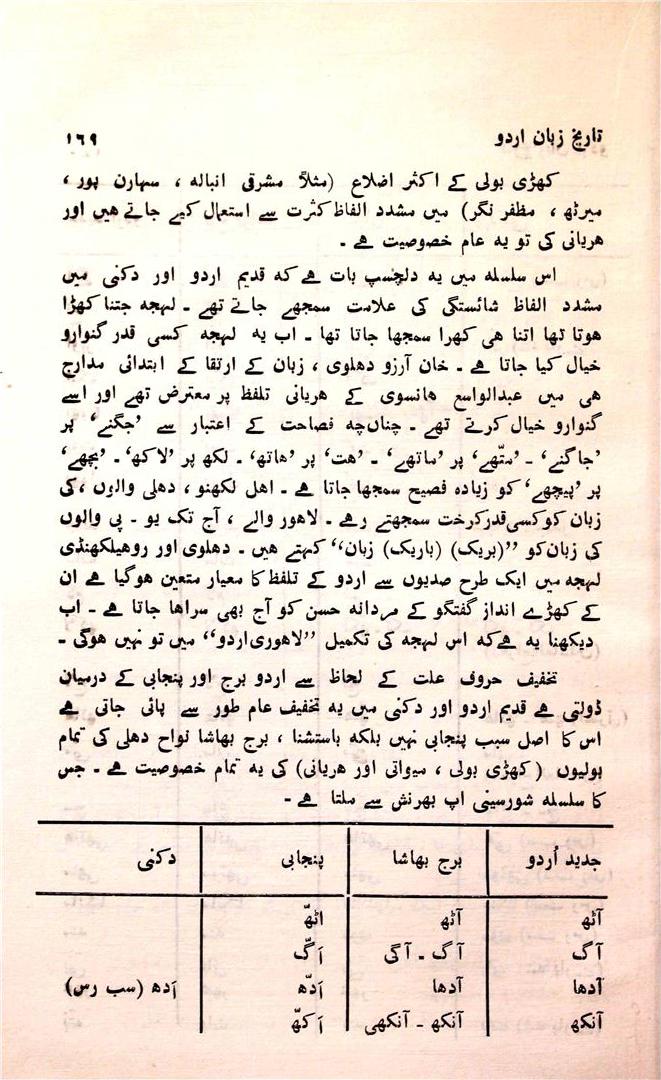 تاریخ زبان اردو ۱۶۹
کھڑی بولی کے اکثر اضلاع (مثلاً مشرقی انبالہ ، سہارن پور ،
میرٹھ ، مظفر نگر) میں مشدد الفاظ کثرت سے استعمال کیے جاتے ھیں اور
ھریانی کی تو یہ عام خصوصیت ھے ۔
اس سلسلہ میں یہ دلچسپ بات ھے کہ قدیم اردو اور دکنی میں
مشدد الفاظ شائستگی کی علامت سمجھے جاتے تھے ۔ لہجہ جتنا کھڑا
ھوتا تھا اتنا ھی کھرا سمجھا جاتا تھا ۔ اب یہ لہجہ کسی قدر گنوارو
خیال کیا جاتا ھے ۔ خان آرزو دھلوی ، زبان کے ارتقا کے ابتدائی مدارج
ھی میں عبدالواسع ھانسوی کے ھریانی تلفظ پر معترض تھے اور اسے
گنوارو خیال کرتے تھے ۔ چناں چہ فصاحت کے اعتبار سے ’جگنے‘ پر
’جاگنے‘ ۔ ’متّھے‘ پر ’ماتھے‘ ۔ ’ھت‘ پر ’ھاتھ‘ ۔ لکھ پر ’لاکھ‘ ۔ ’بچھے‘
پر ’پیچھے‘ کو زیادہ فصیح سمجھا جاتا ھے ۔ اھل لکھنو ، دھلی والوں ، کی
زبان کو کسی قدر کرخت سمجھتے رھے ۔ لاھور والے ، آج تک یو ۔ پی والوں
کی زبان کو ’’(بریک) (باریک) زبان‘‘ کہتے ھیں ۔ دھلوی اور روھیلکھنڈی
لہجہ میں ایک طرح صدیوں سے اردو کے تلفظ کا معیار متعین ھوگیا ھے ان
کے کھڑے انداز گفتگو کے مردانہ حسن کو آج بھی سراھا جاتا ھے ۔ اب
دیکھنا یہ ھے کہ اس لہجہ کی تکمیل ’’لاھوری اردو‘‘ میں تو نہیں ھوگی ۔
تخفیف حروف علت کے لحاظ سے اردو برج اور پنجابی کے درمیان
ڈولتی ھے قدیم اردو اور دکنی میں یہ تخفیف عام طور سے پائی جاتی ھے
اس کا اصل سبب پنجابی نہیں بلکہ باستثنا ، برج بھاشا نواح دھلی کی تمام
بولیوں ( کھڑی بولی ، میواتی اور ھریانی) کی یہ تمام خصوصیت ھے ۔ جس
کا سلسلہ شورسینی اپ بھرنش سے ملتا ھے ۔
جدید اُردو برج بھاشا پنجابی دکنی
آٹھ آٹھ اٹھّ
آگ آگ ۔ آگی اَگّ
آدھا آدھا اَدّھ اَدھ (سب رس)
آنکھ آنکھ ۔ آنکھی اَکھّ